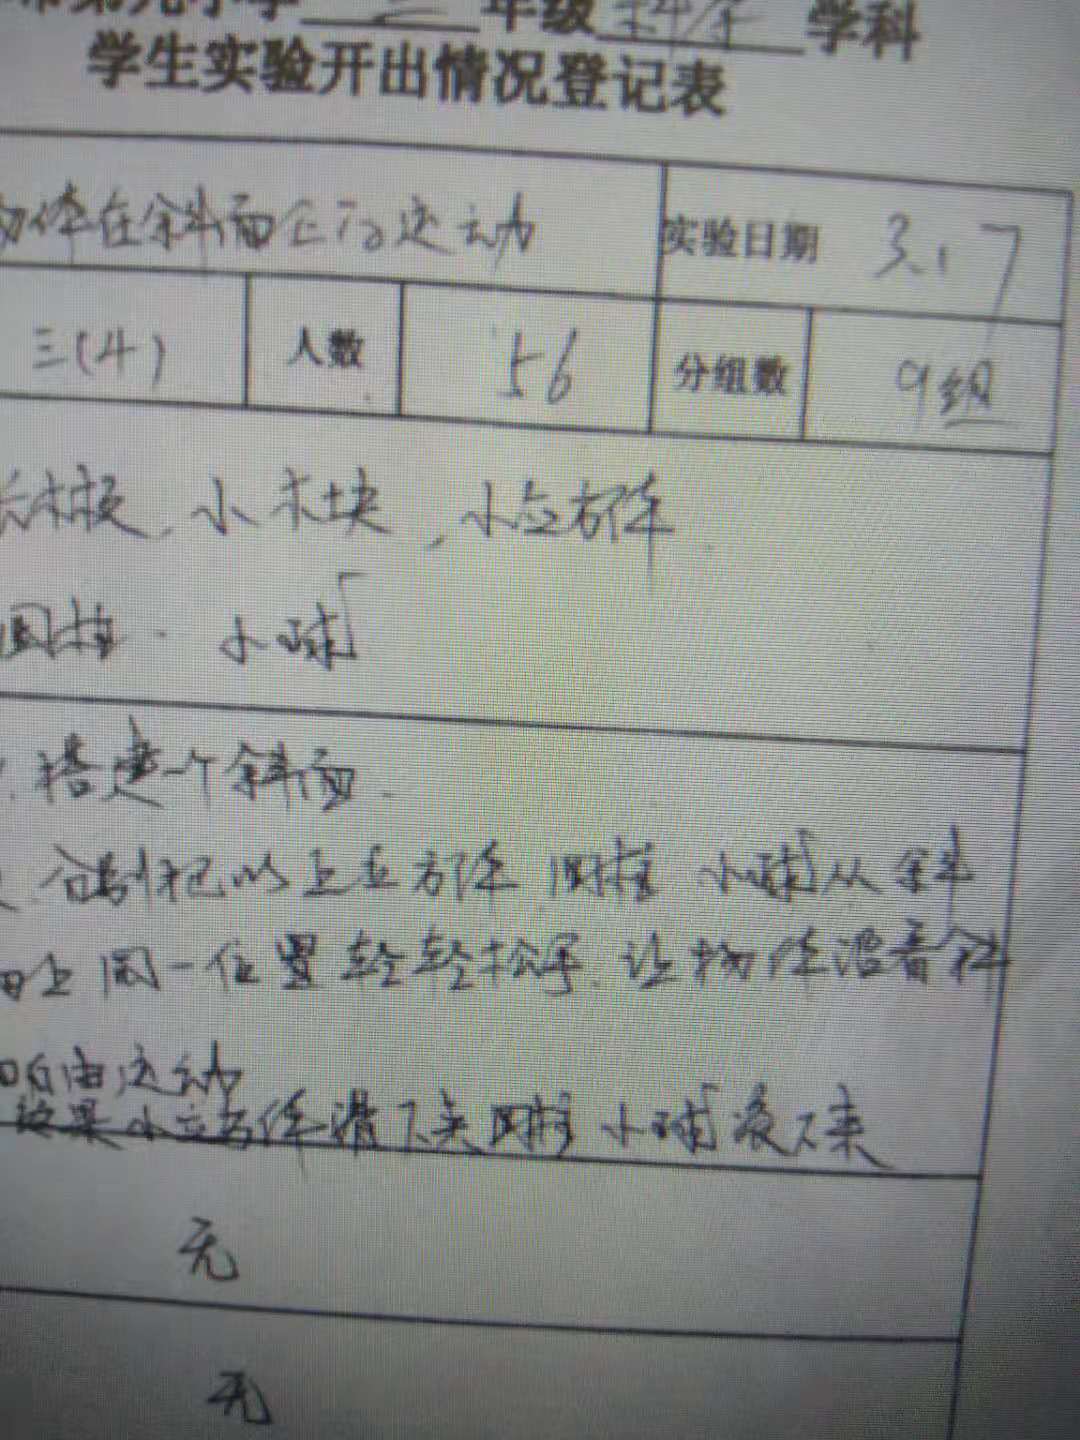 市第九小学 三 年级 科学 学科
学生实验开出情况登记表
物体在斜面上的运动 实验日期 3.7
三(4) 人数 56 分组数 9组
长木板、小木块,小立方体
圆柱 小球
搭建一个斜面.
分别把以上立方体 圆柱 小球从斜
面上同一位置轻轻松手.让物体沿着斜
面自由运动
效果小立方体滑下来圆柱 小球滚下来
无
无